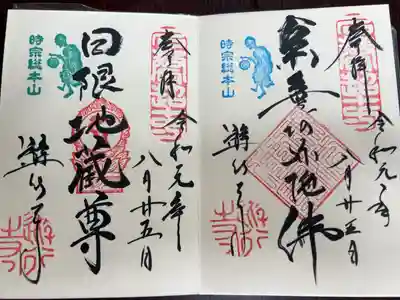 奉拝
令和元年
八月廿五日
南無阿弥陀佛
時宗総本山
遊行寺
奉拝
令和元年
八月廿五日
日限地蔵尊
時宗総本山
遊行寺